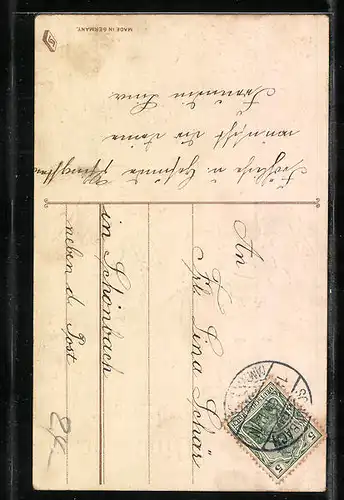 MADE IN GERMANY.
Fröhliche u. Gesunde Pfingsten
wünscht dir deine
Freundin
An
Frl Lina Schär
in Schönbach
neben d. Post
5 5